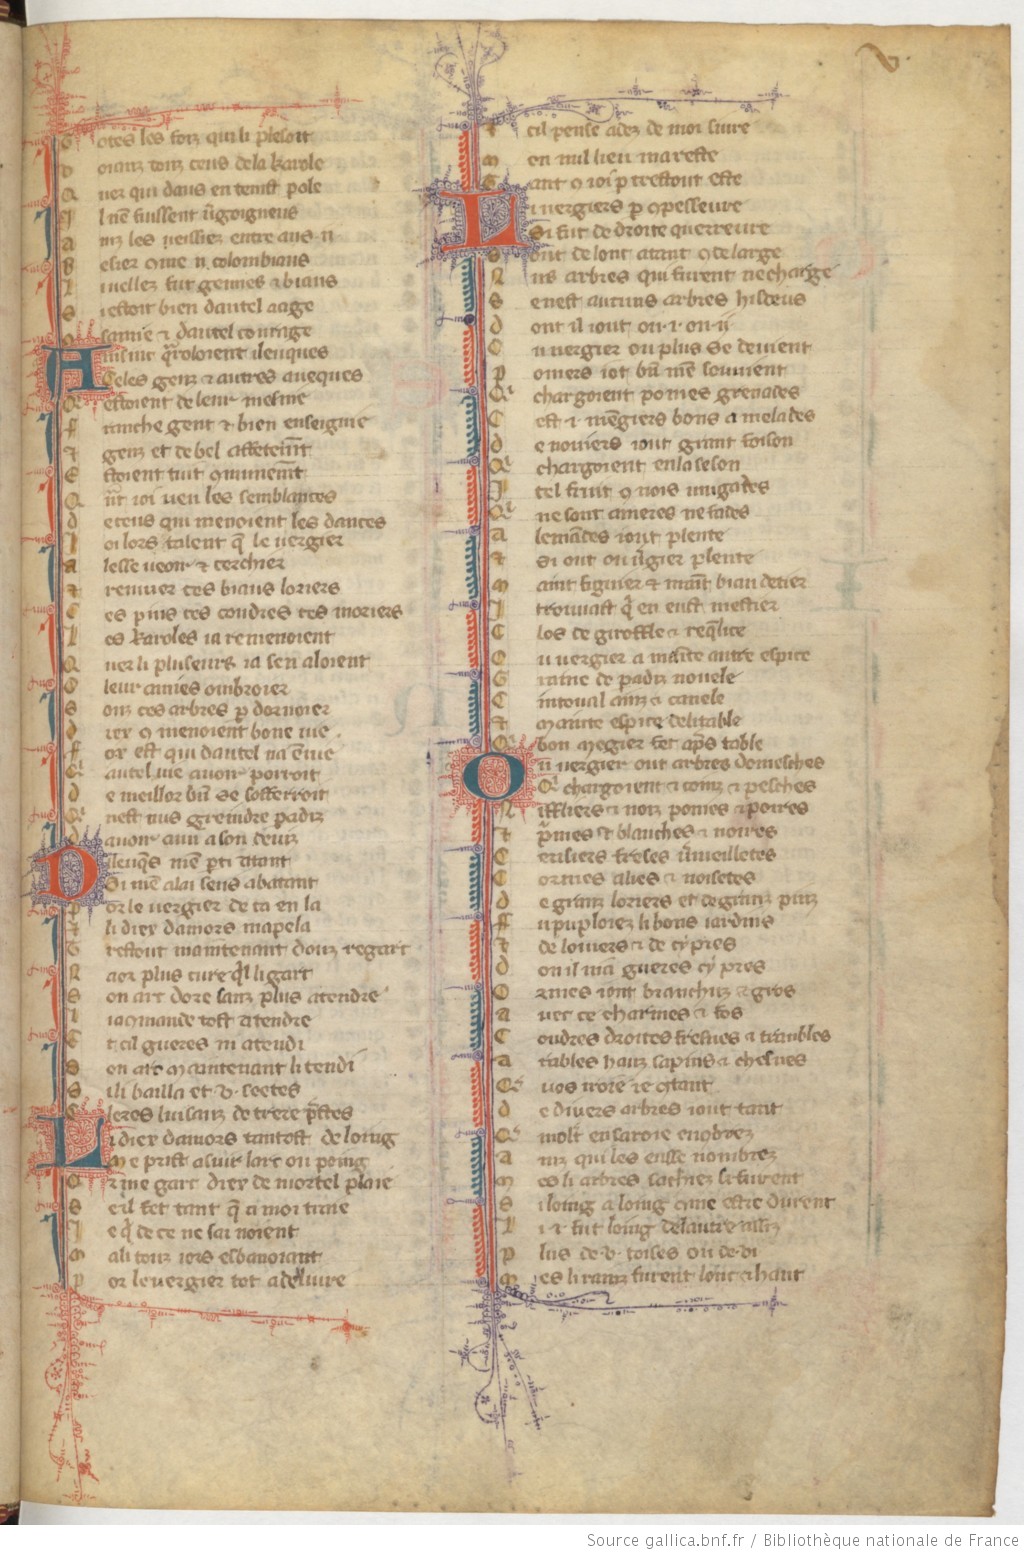 V
Totes les foiz qui li plesoit
Voianz touz ceus de la karole
Quer qui d'aus en tenist pole
Il n'en fuissent vergoigneus
Ainz les veissiez entre aus ii
Besier comme ii colombiaus
Li vallez fut gennes et biaus
Si estoit bien d'autel aage
s'amie et d'autel courage
Ainsinc qaroloient ilenques
Celes genz et autres aveques
Qui estoient de leur mesnie
Franche gent et bien enseignie
Et genz et de bel affetement
Estoient tuit communement
Quant j'oi veu les semblances
de ceus qui menoient les dances
J'oi lors talent que le vergier
alesse veoir et cerchier
et remirer ces biaus loriers
Ces pins ces coudres ces moriers
Les karoles ja remenoient
Quer li plusieurs ja s'en aloient
O leur amies ombroier
Souz ces arbres por dornoier
diex com menoient bone vie
fox est qui d'autel n'a envie
Qui autel vie avoir porroit
de meillor bien se sofferroit
Qu'il n'est nus greindre padiz
d'avoir amie a son deviz
D'ileuques m'en parti atant
Si m'en alai seus abatant
Por le vergier de ca en la
Et li diex d'amors m'apela
Trestout maintenant douz regart
N'a or plus cure qu'il li gart
Son arc dore sanz plus atendre
Li a commande tost a tendre
Et cil gueres n'i atendi
Son arc maintenant li tendi
Si li bailla et .v. seetes
Cleres luisanz de trere prestes
Li diex d'amors tantost de loing
Me prist a suir l'arc ou poing
Or me gart diex de mortel plaie
Se il fet tant que a moi traie
Je qui de ce ne sai noient
M'ali touz jors esbanoiant
Por le vergier tot a delivre
Et cil pense adez de moi suire
Men nul lieu m'areste
Tant com j'oi par trestout este
Li vergiers par compasseure
Si fut de droite querreure
Sout de lonc atant com de large
Nus arbres qui furent ne charge
Se n'est aucuns arbres hideus
dont il i out ou .i. ou ii
Ou vergier ou plus se devient
Pomiers i ot bien m'en souvient
Qui chargoient pomes grenades
C'est .i. mengiers bons a melades
de noiers i out grant foison
Qui chargoient en la seson
Itel fruit com nois mugades
Qui ne sont ameres ne fades
alemandes i out plente
et si out ou vergier plente
Maint figuier et maint biau detier
I trouvast qu'en eust mestier
Clos de giroffle et requelice
Ou vergier a mainte autre espice
Graine de padiz novele
Citoual aniz et canele
Et mainte espice delitable
Que bon mengier fet apres table
Ou vergier out arbres domesches
Qui chargoient et coinz et pesches
Neffliers et noiz pomes et poires
Et prunes blanches et noires
Cerisiers freses vermeilletes
Cormes alies et noisetes
de granz loriers et de granz pinz
Fu puplorez li bons jardins
Et de loiviers et de cypres
don il n'i a gueres cy pres
Ormes i out branchuz et gros
avec ce charmes et fos
Coudres droites fresnes et trambles
Arables hauz sapins et chesnes
Que vos iroie ie contant
de divers arbres i out tant
Que molt en saroie enombrez
Ainz qui les eusse nombrez
Mes li arbres sachiez li furent
si loing a loing comme estre durent
Li .i. fut loing de l'autre assiz
Plus de .v. toises ou de .vi
Mes li rainz furent lonc et haut